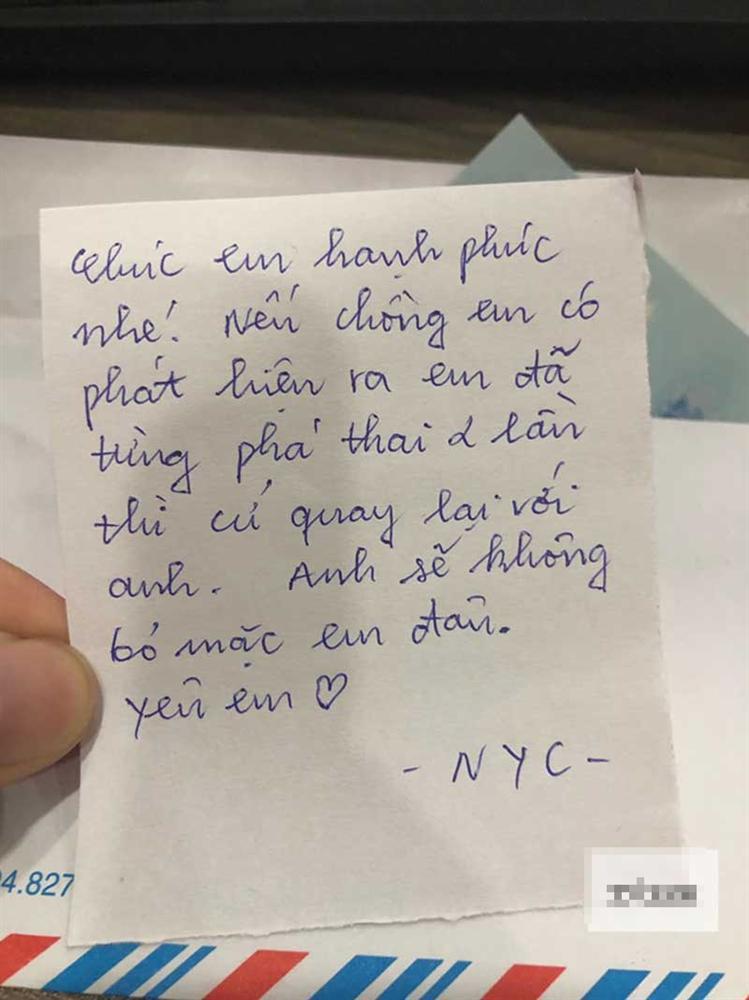 Chúc em hạnh phúc
nhé! Nếu chồng em có
phát hiện ra em đã
từng phá thai 2 lần
thì cứ quay lại với
anh. Anh sẽ không
bỏ mặc em đâu.
Yêu em ♡
- NYC -
04.827